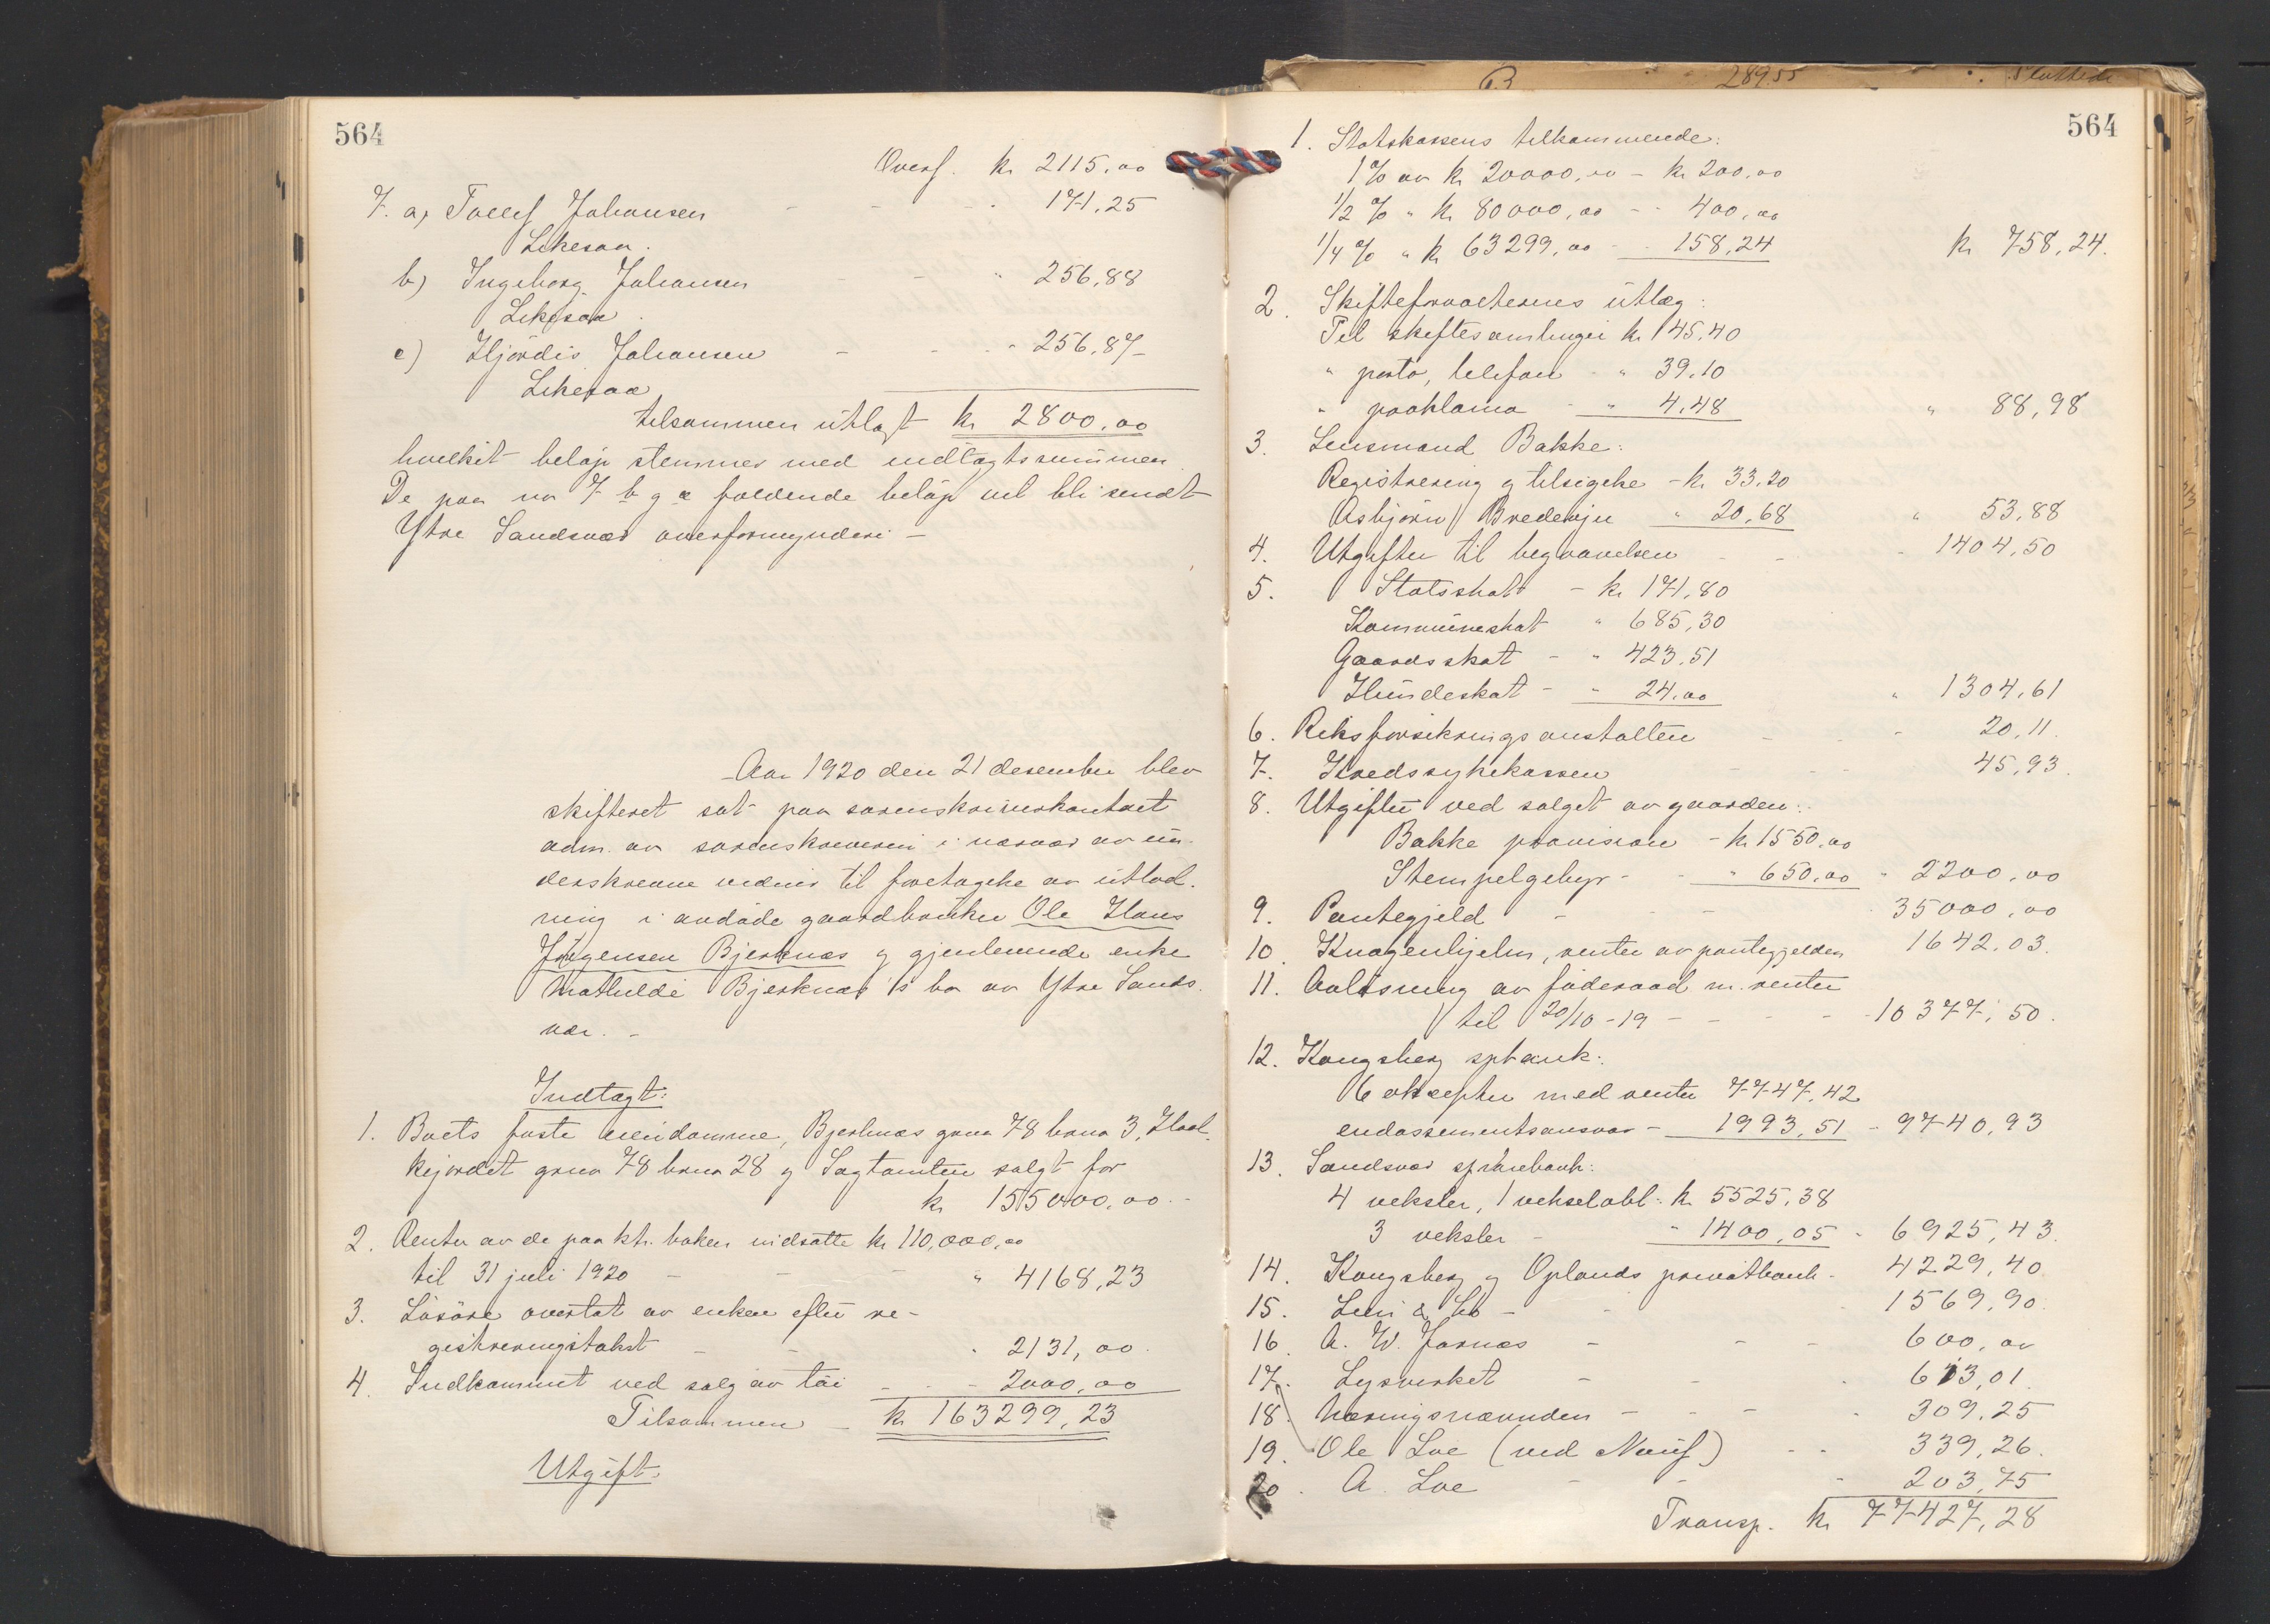 564
Overf. kr 2115,00
7. a, Tollef Johansen - - - " 171,25
Likesaa.
b) Ingeborg Johansen - - " 256,88
Likesaa.
c) Hjördis Johansen - - - " 256,87
Likesaa
tilsammen utlagt kr 2800,00
hvilket beløp stemmer med indtægtssummen.
De paa nr 7 b g c faldende beløp vil bli sendt
Ytre Sandsvær overformynderi -
Aar 1920 den 21 desember blev
skifteret sat paa sorenskriverkontoret
adm. av sorenskriveren i nærvær av un-
derskrevne vidner til foretagelse av utlod-
ning i avdøde gaardbruker Ole Hans
Jørgensen Bjerknæs g gjenlevende enke
Mathilde Bjerknæs's bo av Ytre Sands-
vær. -
Indtægt:
1. Boets faste eiendomme, Bjerknæs gnr 78 bnr 3, Haal-
kejordet gnr 78 bnr 28 g Sagtomten solgt for
kr 155000,00.-
2. Renter av de paa ktr. boken indsatte kr 110,000,00
til 31 juli 1920 - - - " 4168,23
3. Løsøre overtat av enken efter re-
gistreringstakst - - " 2131,00.
4. Indkommet ved salg av tøi - - - 2000,00
Tilsammen - kr 163299,23
Utgift:
63 289.55 Sluttede
564
1. Statskassens tilkommende:
1% av kr 20000,00 - kr 200,00
1/2 % " kr 80000,00 - - 400,00
1/4 % " kr 63299,00 - - 158,24 kr 758,24.
2. Skifteforvalterens utlæg:
Til skiftesamlinger kr 45,40
" porto, telefon - " 39,10
" proklama - " 4,48 " 88,98
3. Lensmand Bakke:
Registrering g tilsigelse - kr 33,20
Asbjørn Bredevju " 20,68 " 53,88
4. Utgifter til begravelsen - - - 1404,50
5. Statsskat - kr 171,80
Kommuneskat " 685,30
Gaardsskat - " 423,51
Hundeskat - " 24,00 " 1304,61
6. Riksforsikringsanstalten - - - 20,11.
7. Kredssykekassen - - - 45,93.
8. Utgifter ved salget av gaarden:
Bakke provision - kr 1550,00
Stempelgebyr - - " 650,00 " 2200,00
9. Pantegjeld - - - 35000,00
10. Knagenhjelm, renter av pantegjelden 1642,03.
11. Avløsning av føderaad m. renter
til 20/10-19 - - - - - 10377,50.
12. Kongsberg spbank:
6 aksepter med renter 7747,42
endossementsansvar - 1993,51 - 9740,93
13. Sandsvær sparebank:
4 veksler, 1 vekselobl: kr 5525,38
3 veksler - " 1400,05 - 6925,43.
14. Kongsberg g Oplands privatbank - 4229,40
15. - - 1569,90.
16. A. W. Jarnæs - - - 600,00
17. Lysverket - - - 613,01.
18. Næringsnævnden - - - - 309,25
19. Ole Loe (ved ) - - 339,26.
20. A. Loe - - - 203,75
Transp. kr 77427,28